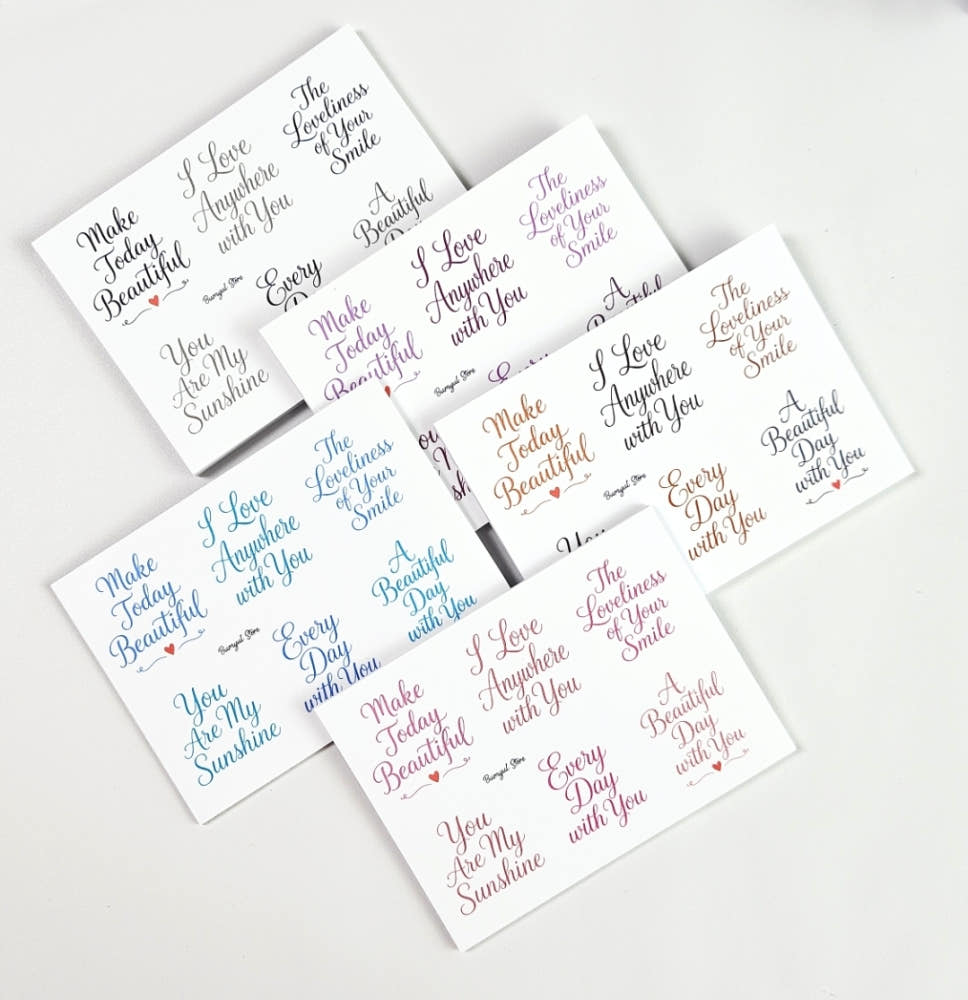 The
Loveliness
of Your
Smile
I Love
Anywhere
with You
Make
Today
Beautiful
A
Beautiful
Day
Every
You
Are My
Sunshine
The
Loveliness
of Your
Smile
I Love
Anywhere
with You
Make
Today
Beautiful
A
Beautiful
Every
The
Loveliness
of Your
Smile
I Love
Anywhere
with You
Make
Today
Beautiful
A
Beautiful
Day
with You
Every
Day
with You
You
The
Loveliness
of Your
Smile
I Love
Anywhere
with You
Make
Today
Beautiful
A
Beautiful
Day
with You
Every
Day
with You
You
Are My
Sunshine
The
Loveliness
of Your
Smile
I Love
Anywhere
with You
Make
Today
Beautiful
A
Beautiful
Day
with You
Every
Day
with You
You
Are My
Sunshine